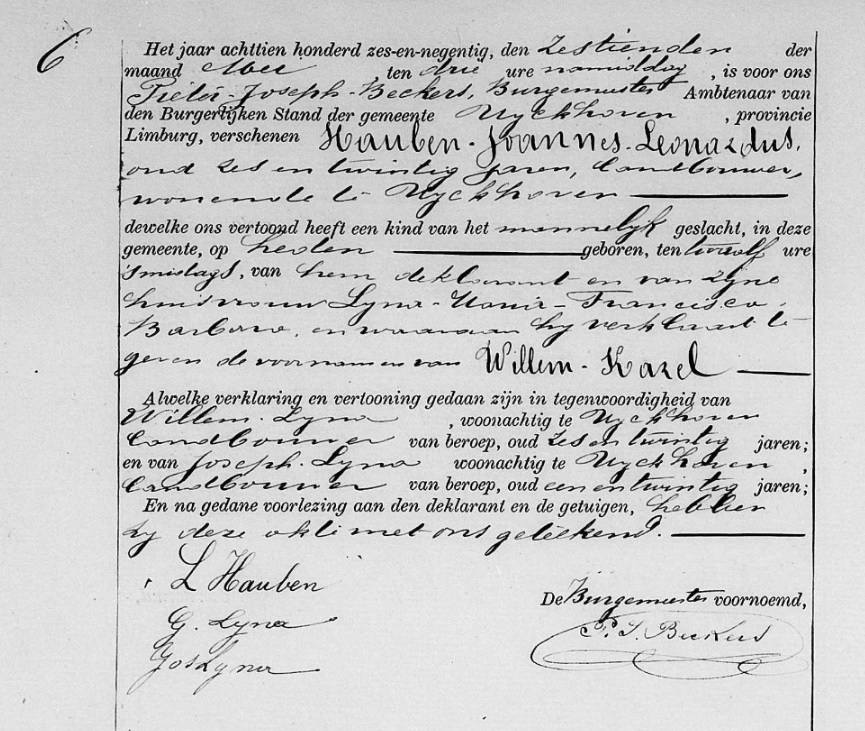 6
Het jaar achttien honderd zes-en-negentig, den Zestienden der
maand Mei ten drie ure namiddag, is voor ons
Pieter-Joseph-Beckers, Burgemeester Ambtenaar van
den Burgerlijken Stand der gemeente Uyckhoven, provincie
Limburg, verschenen Hauben-Joannes-Leonardus,
oud zes en twintig jaren, landbouwer,
wonende te Uyckhoven
dewelke ons vertoond heeft een kind van het mannelyk geslacht, in deze
gemeente, op heden geboren, ten twaalf ure
'smiddags, van hem deklarant en van zyne
huisvrouw Lyna-Maria-Francisca-
Barbara, en waaraan hy verklaart te
geven de voornamen van Willem-Karel
Alwelke verklaring en vertooning gedaan zijn in tegenwoordigheid van
Willem-Lyna, woonachtig te Uyckhoven
landbouwer van beroep, oud zes en twintig jaren;
en van Joseph-Lyna woonachtig te Uyckhoven,
landbouwer van beroep, oud een en twintig jaren;
En na gedane voorlezing aan den deklarant en de getuigen, hebben
zy deze akte met ons geteekend.
L Hauben
De Burgemeester voornoemd,
G. Lyna
P. J. Beckers
Jos Lyna